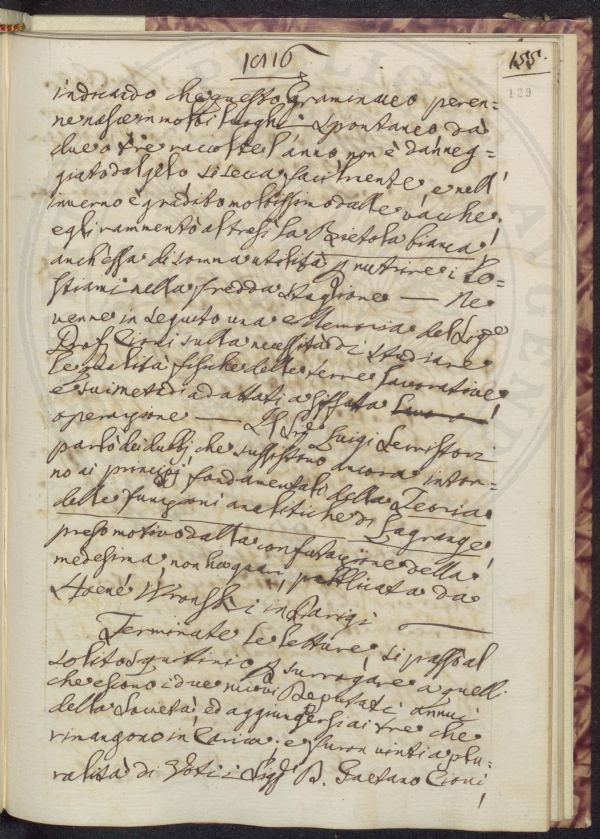 1816
155.
129
indicando che questo Graminaceo peren=
ne nasce in molti luoghi spontaneo dà
due o tre raccolte l'anno non è danneg=
giato dal gelo si secca facilmente e nell'
inverno è gradito moltissimo dalle vacche,
egli rammentò altresì la Bietola bianca
anch'essa di somma utilità p nutrire i Be=
stiami nella fredda stagione — Ne
venne in seguito una Memoria del Sigre
Prof. Cioni sulla necessità di studiare
le qualità fisiche delle terre lavorative
e sui metodi adattati a siffatta
operazione — Il Sigr Luigi Serristori
parlò dei dubbj che sussistono ancora intor=
no ai principj fondamentali della Teoria
delle funzioni analitiche di Lagrange
preso motivo dalla confutazione della
medesima non ha guari pubblicata da
Hoené Wronski in Parigi —
Terminate le letture si passò al
solito squittinio p surrogare a quelli
che escono i due nuovi Deputati annui
della Società ed aggiungersi ai tre che
rimangono in Carica; e furon vinti a plu=
ralità di Voti i Sigri D. Gaetano Cioni